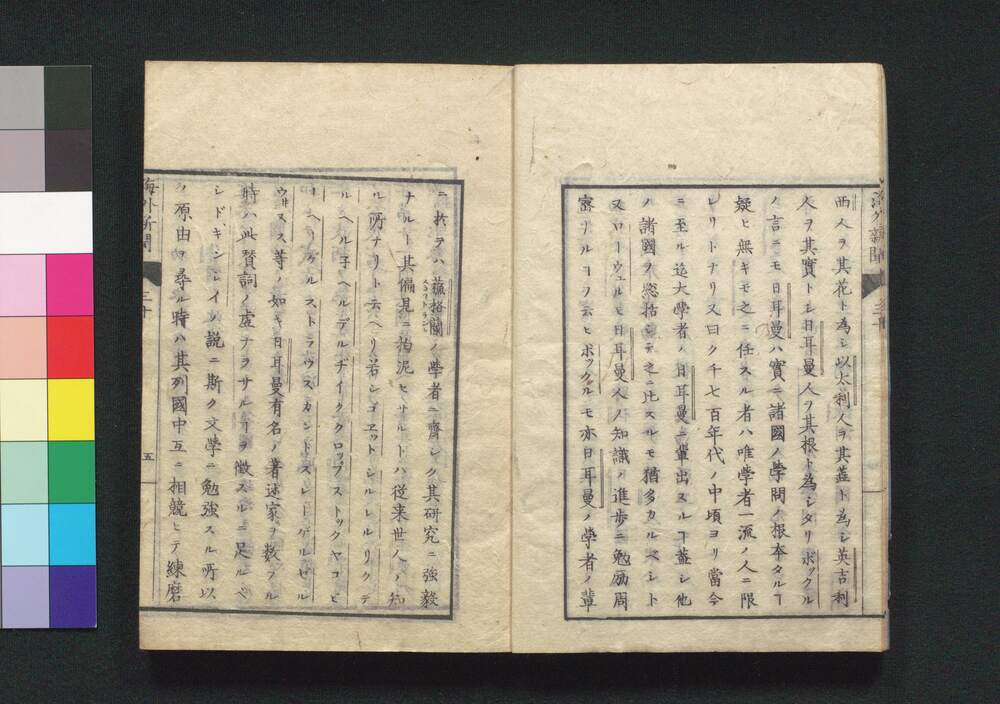 西人ヲ其花ト為シ以太利人ヲ其蓋ト為シ英吉利
人ヲ其實トシ日耳曼人ヲ其根ト為シタリボックル
ノ言ニモ日耳曼ハ實ニ諸國ノ學問ノ根本タルヿ
疑ヒ無キモ之ニ任スル者ハ唯學者一流ノ人ニ限
レリトナリ又曰ク千七百年代ノ中頃ヨリ當今
ニ至ル迄大學者ノ日耳曼ニ輩出スルヿ蓋シ他
ノ諸國ヲ惣括シテ之ニ比スルモ猶多カルベシト
又ローウェルモ日耳曼人ノ知識ノ進歩ニ勉励周
密ナルヿヲ云ヒボックルモ亦日耳曼ノ學者ノ輩
海外新聞
三十
ニ於ヲハ蘇格蘭ノ學者ニ齊シク其研究ニ強毅
スコットランド
ナルヿ其偏見ニ拘泥セサルトハ従来世人ノ知
ル所ナリト云ヘリ若シゴエットシルレルリクテ
ルヘル子ヘルデルヂイクロップストックヤコビ
ーヘーゲルストラウスカントスレーゲルゼル
ウ井スス等ノ如キ日耳曼有名ノ著述家ヲ数フル
時ハ此賛詞ノ虚ナラサルヿヲ徴スルニ足ルベ
シドキンレイノ説ニ斯ク文學ニ勉強スル所以
ノ原由ヲ尋ル時ハ其列國中互ニ相競ヒテ練磨
海外新聞
三十
五